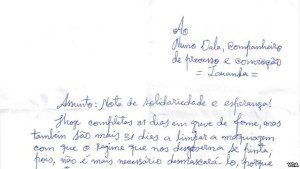 Ao
Nuno Dala, Companheiro
de processo e convicção
= Luanda =
Assunto: Nota de solidariedade e esperança!
Hoje completas 31 dias em greve de fome, mas
também são mais 31 dias a limpar a maquiagem
com que o regime que nos desgoverna se pinta;
pois, não é mais necessário desmascará-lo, porque
VOA